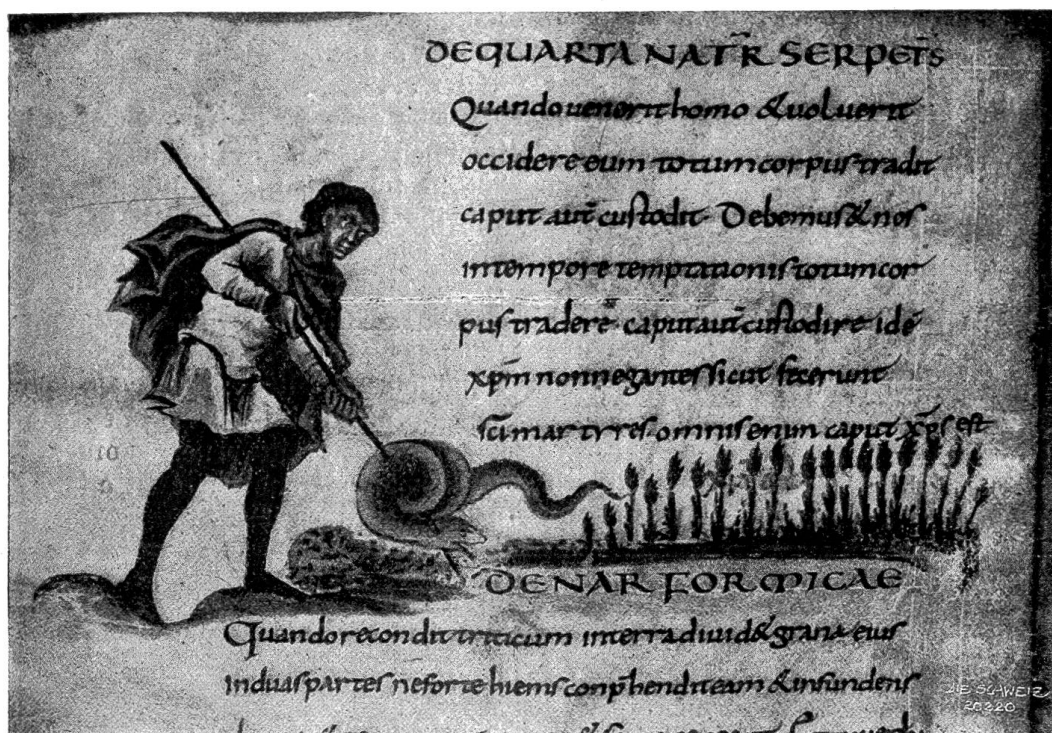 DE QUARTA NAT̄R SERPET̄S
Quando uenerit homo & uoluerit
occidere eum totum corpus tradit
caput aut̄ custodit. Debemus & nos
in tempore temptationis totum cor
pus tradere caput aut̄ custodire idē
xp̄m non negantes sicut fecerunt
sc̄i martyres omnis enim caput xp̄s est
DE NAR FORMICAE
Quando recondit triticum in terra diuid& grana eius
in duas partes ne forte hiems conp̄hendit eam & infundens
DIE SCHWEIZ
20320